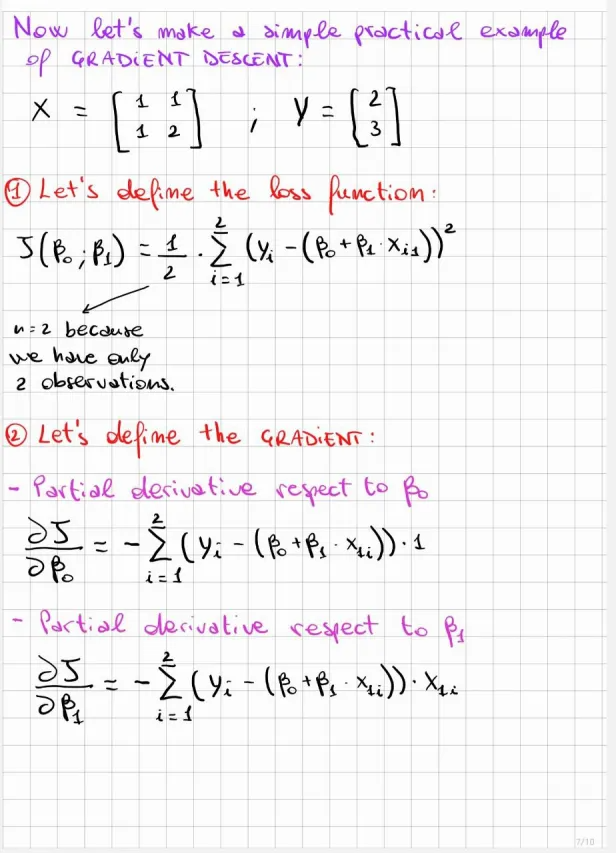 Now let's make a simple practical example
of GRADIENT DESCENT:
X = [1 1; 1 2] ; Y = [2; 3]
① Let's define the loss function:
J(β₀; β₁) = 1/2 · Σ_{i=1}^{2} (yᵢ - (β₀ + β₁ · xᵢ₁))²
n=2 because
we have only
2 observations.
② Let's define the GRADIENT:
- Partial derivative respect to β₀
∂J/∂β₀ = - Σ_{i=1}^{2} (yᵢ - (β₀ + β₁ · x₁ᵢ)) · 1
- Partial derivative respect to β₁
∂J/∂β₁ = - Σ_{i=1}^{2} (yᵢ - (β₀ + β₁ · x₁ᵢ)) · x₁ᵢ
7/10